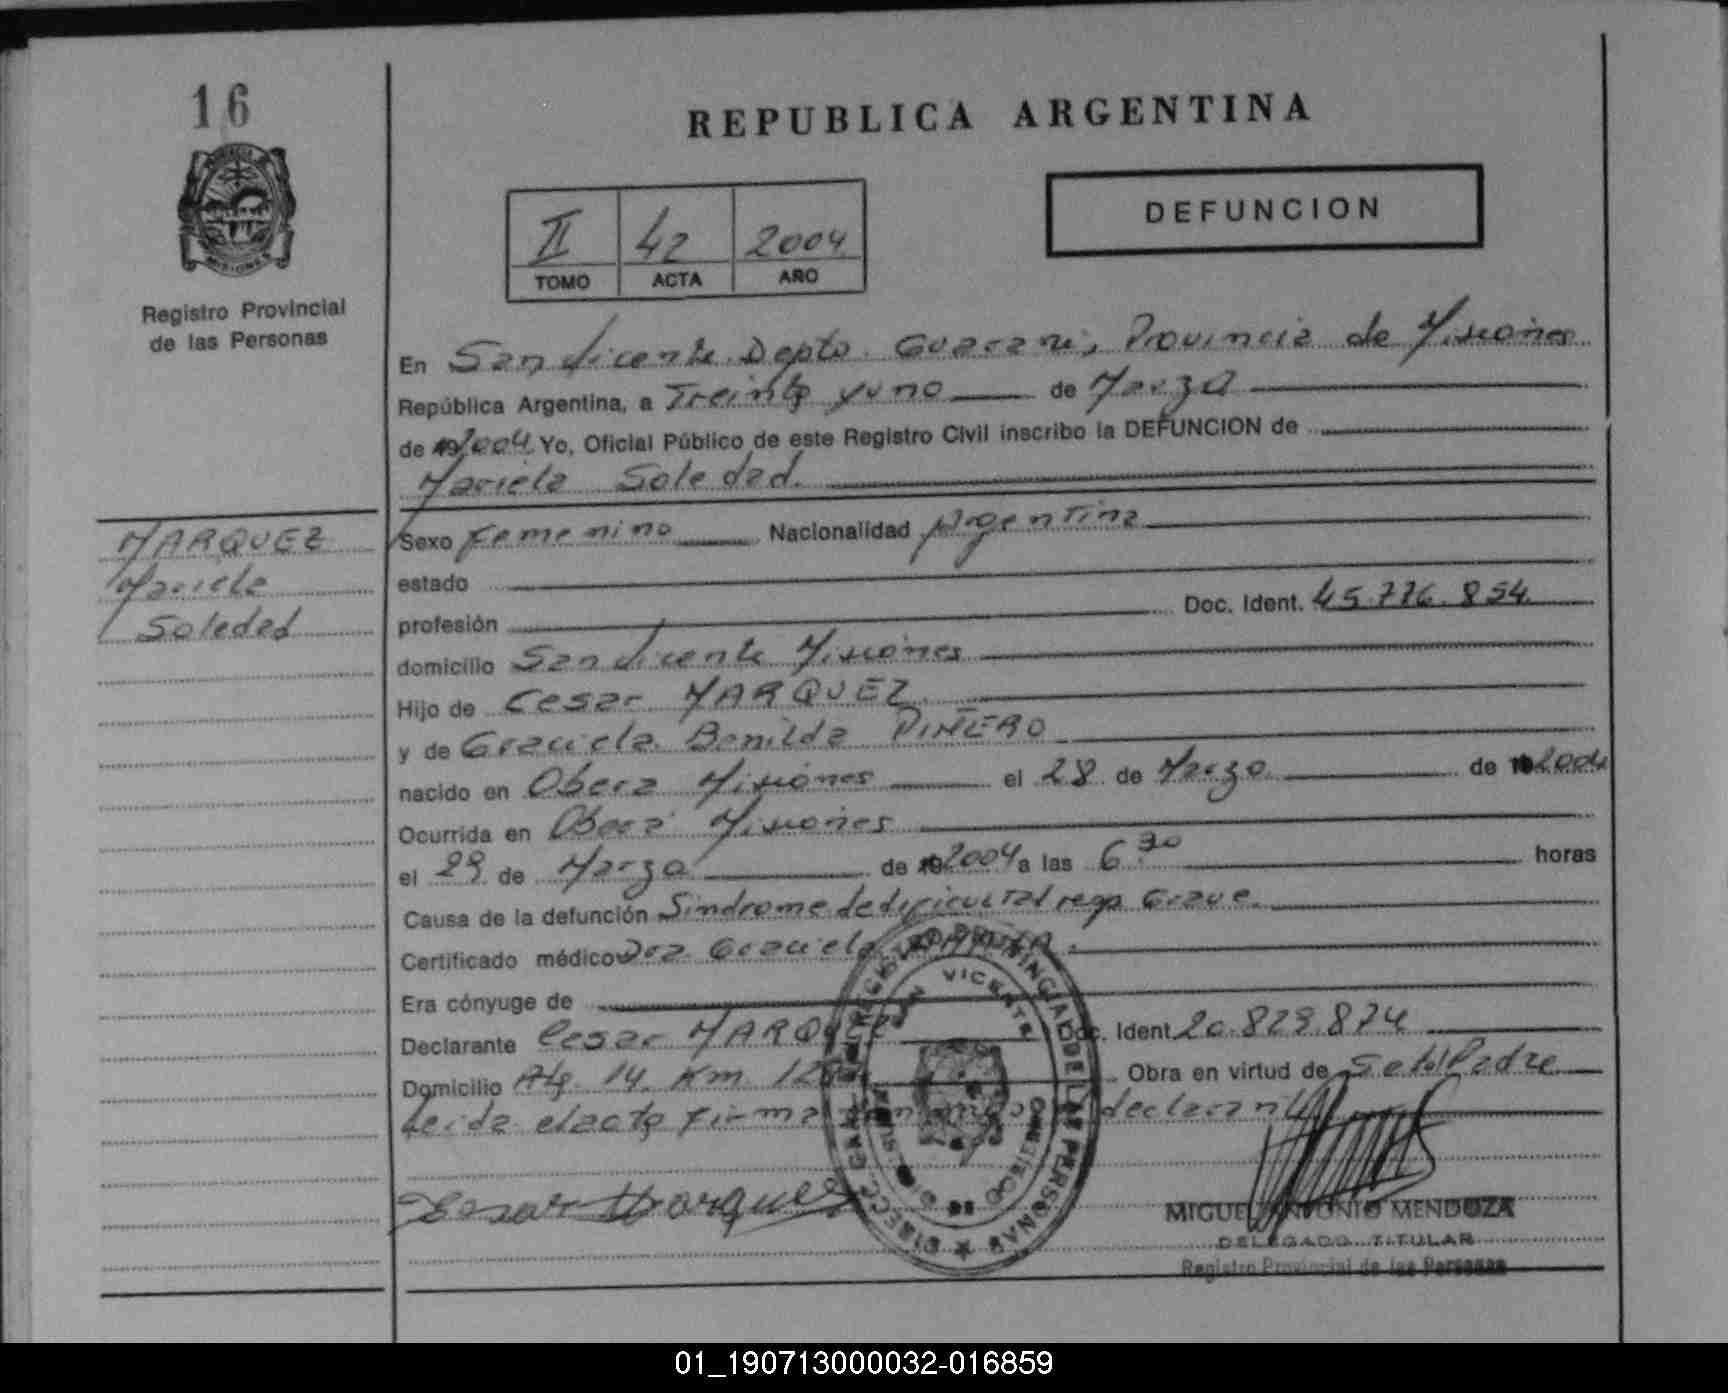 16
REPUBLICA ARGENTINA
DEFUNCION
II 42 2004
TOMO ACTA AÑO
MISIONES
Registro Provincial
de las Personas
En San Vicente Depto. Guarani, Provincia de Misiones
República Argentina, a Treinta y uno de Marzo
de 2004 Yo, Oficial Público de este Registro Civil inscribo la DEFUNCION de
Mariela Soledad.
MARQUEZ
Mariela
Soledad
Sexo Femenino Nacionalidad Argentina
estado
profesión Doc. Ident. 45.776.854
domicilio San Vicente Misiones
Hijo de Cesar MARQUEZ
y de Graciela Bonilda PIÑERO
nacido en Obera Misiones el 28 de Marzo de 2004
Ocurrida en Oberá Misiones
el 29 de Marzo de 2004 a las 6 30 horas
Causa de la defunción Sindrome de dificultad resp Grave.
Certificado médico Dra. Graciela
Era cónyuge de
Declarante Cesar MARQUEZ Doc. Ident 20.829.874
Domicilio Km Obra en virtud de Ser el Padre
Leida el acta firma declarante
Cesar Marquez
REGISTRO PROVINCIAL DE LAS PERSONAS
SAN VICENTE
MIGUEL ANTONIO MENDOZA
DELEGADO TITULAR
Registro Provincial de las Personas
01_190713000032-016859